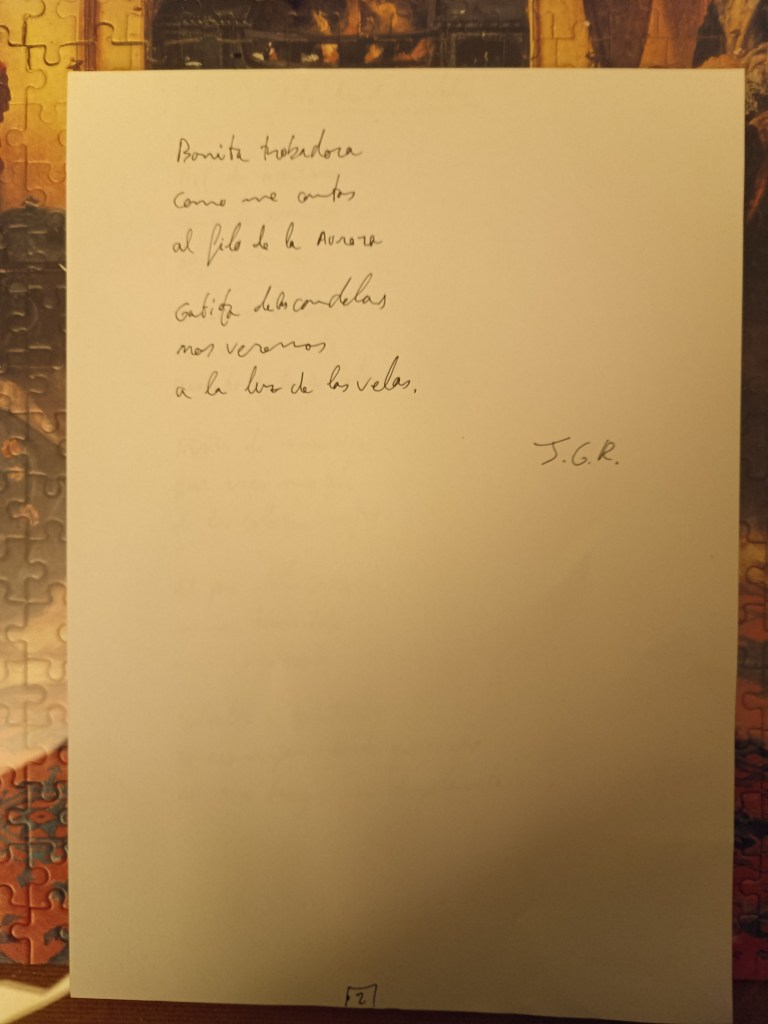 Bonita trobadora
como me cantas
al filo de la Aurora
Gatita de las candelas
nos veremos
a la luz de las velas.
J.G.R.
2